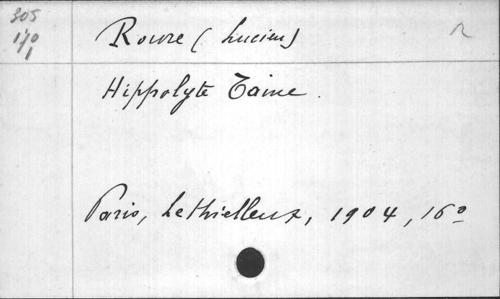 305
170
1
Roure (Lucien)
Hippolyte Taine.
Paris, Lethielleux, 1904, 16º